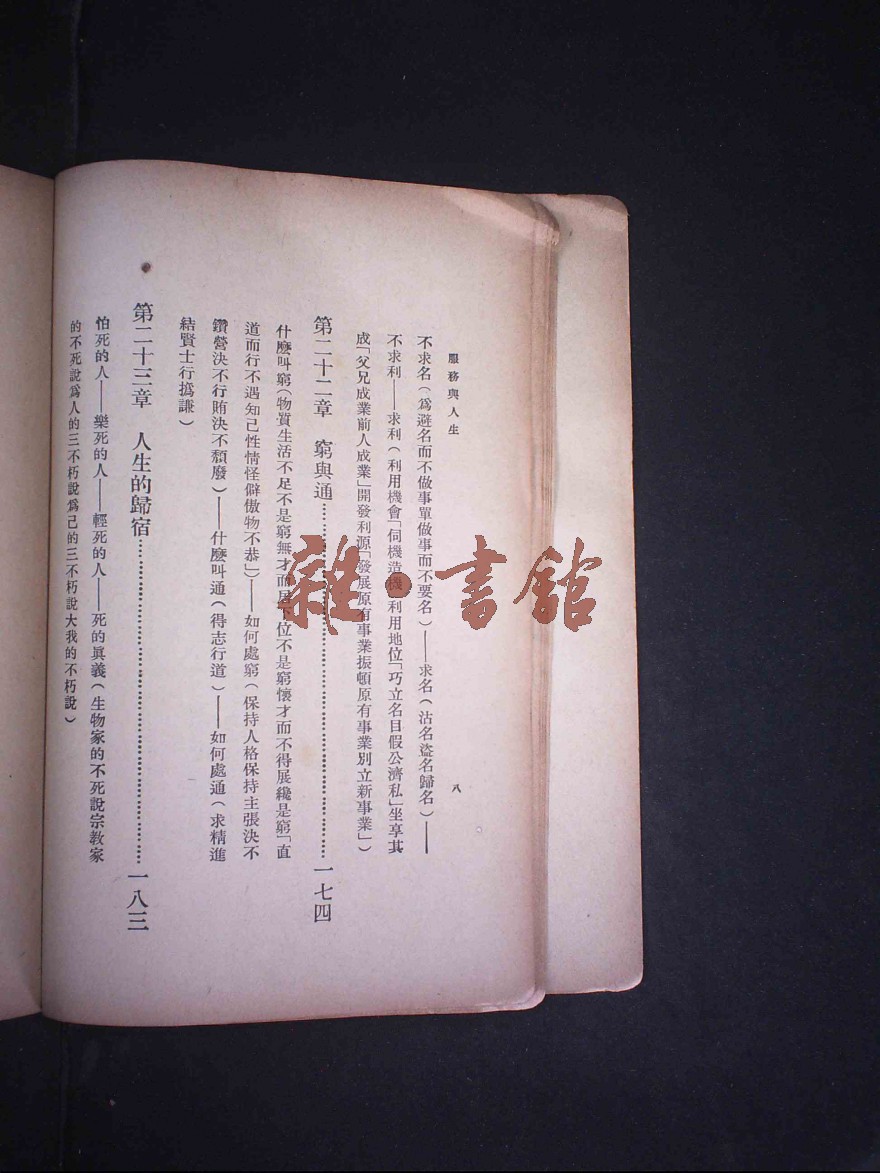 服務與人生
八
不求名（爲避名而不做事單做事而不要名）——求名（沽名盜名歸名）——
不求利——求利（利用機會「伺機造機」利用地位「巧立名目假公濟私」坐享其
成「父兄成業前人成業」開發利源「發展原有事業振頓原有事業別立新事業」）
第二十二章　窮與通……一七四
什麽叫窮（物質生活不足不是窮無才而居下位不是窮懷才而不得展纔是窮「直
道而行不遇知己性情怪僻傲物不恭」）——如何處窮（保持人格保持主張決不
鑽營決不行賄決不頹廢）——什麽叫通（得志行道）——如何處通（求精進
結賢士行撝謙）
第二十三章　人生的歸宿……一八三
怕死的人——樂死的人——輕死的人——死的眞義（生物家的不死說宗教家
的不死說爲人的三不朽說爲己的三不朽說大我的不朽說）
雜·書館